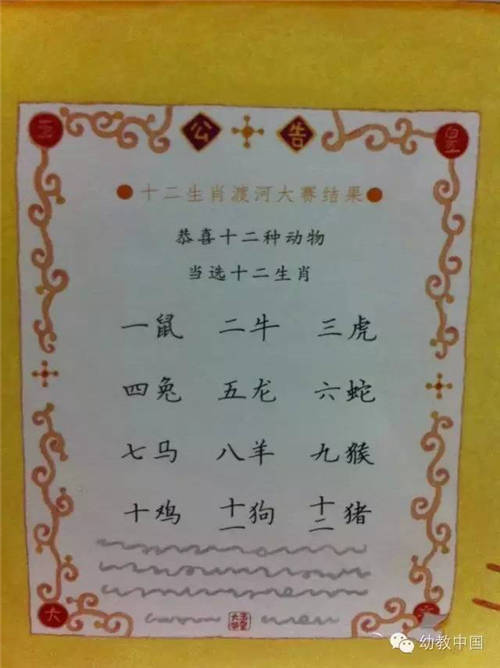 公告
十二生肖渡河大赛结果
恭喜十二种动物
当选十二生肖
一鼠 二牛 三虎
四兔 五龙 六蛇
七马 八羊 九猴
十鸡 十一狗 十二猪
幼教中国